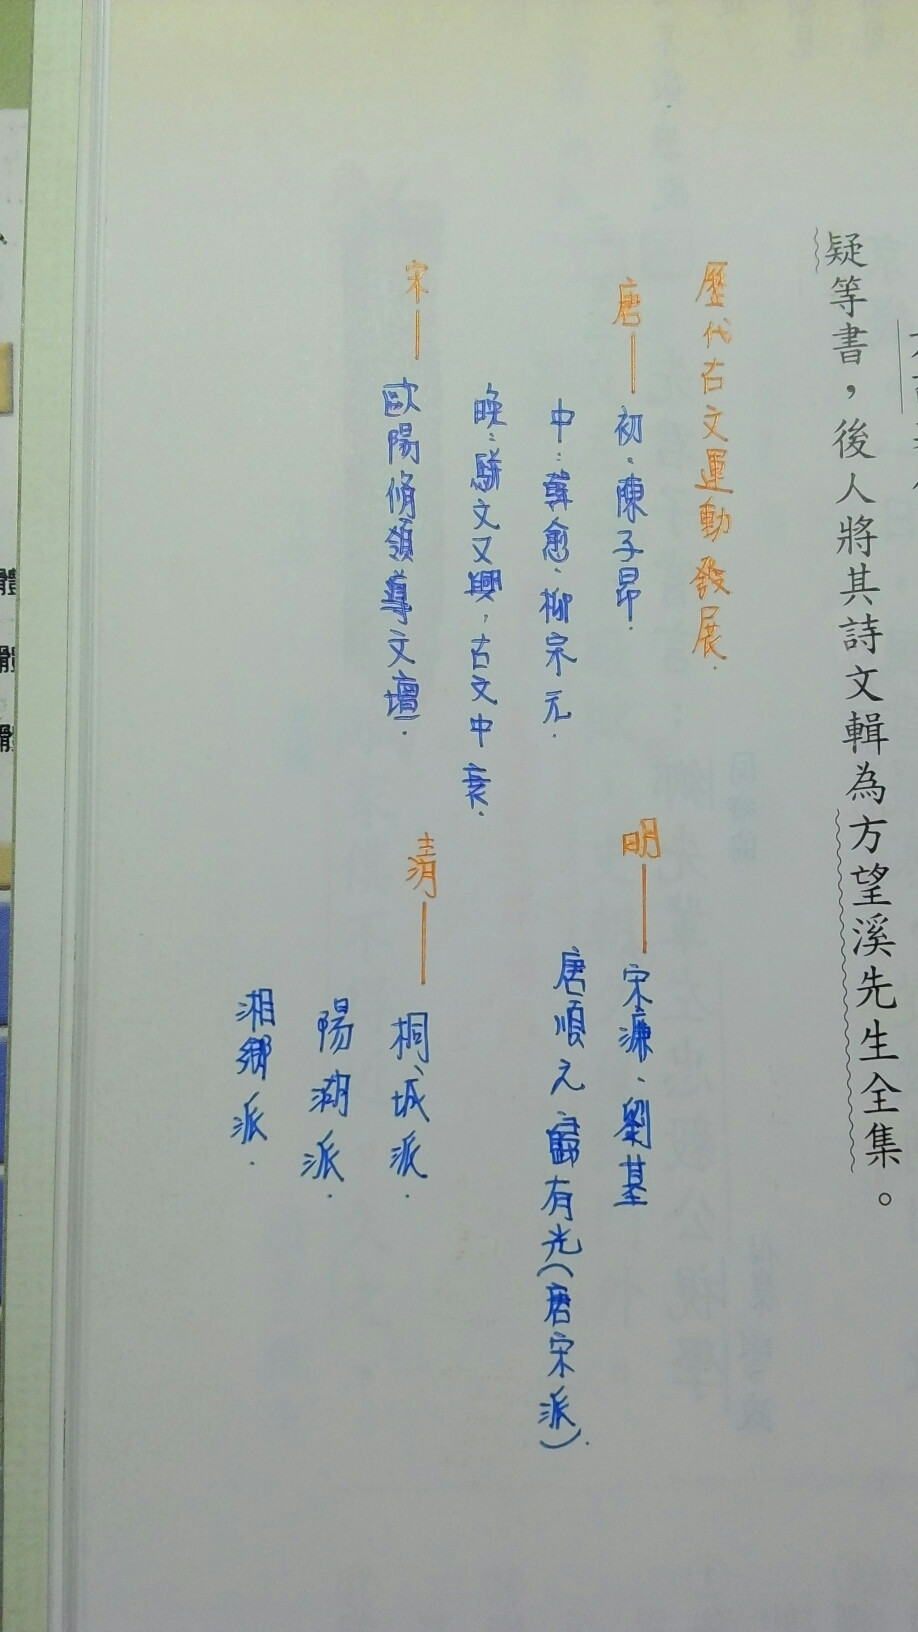 疑等書，後人將其詩文輯為方望溪先生全集。
歷代古文運動發展.
唐—初：陳子昂.
中：韓愈、柳宗元.
晚：駢文又興，古文中衰.
宋—歐陽脩領導文壇.
明—宋濂、劉基
唐順之 歸有光(唐宋派).
清—桐城派.
陽湖派.
湘鄉派.